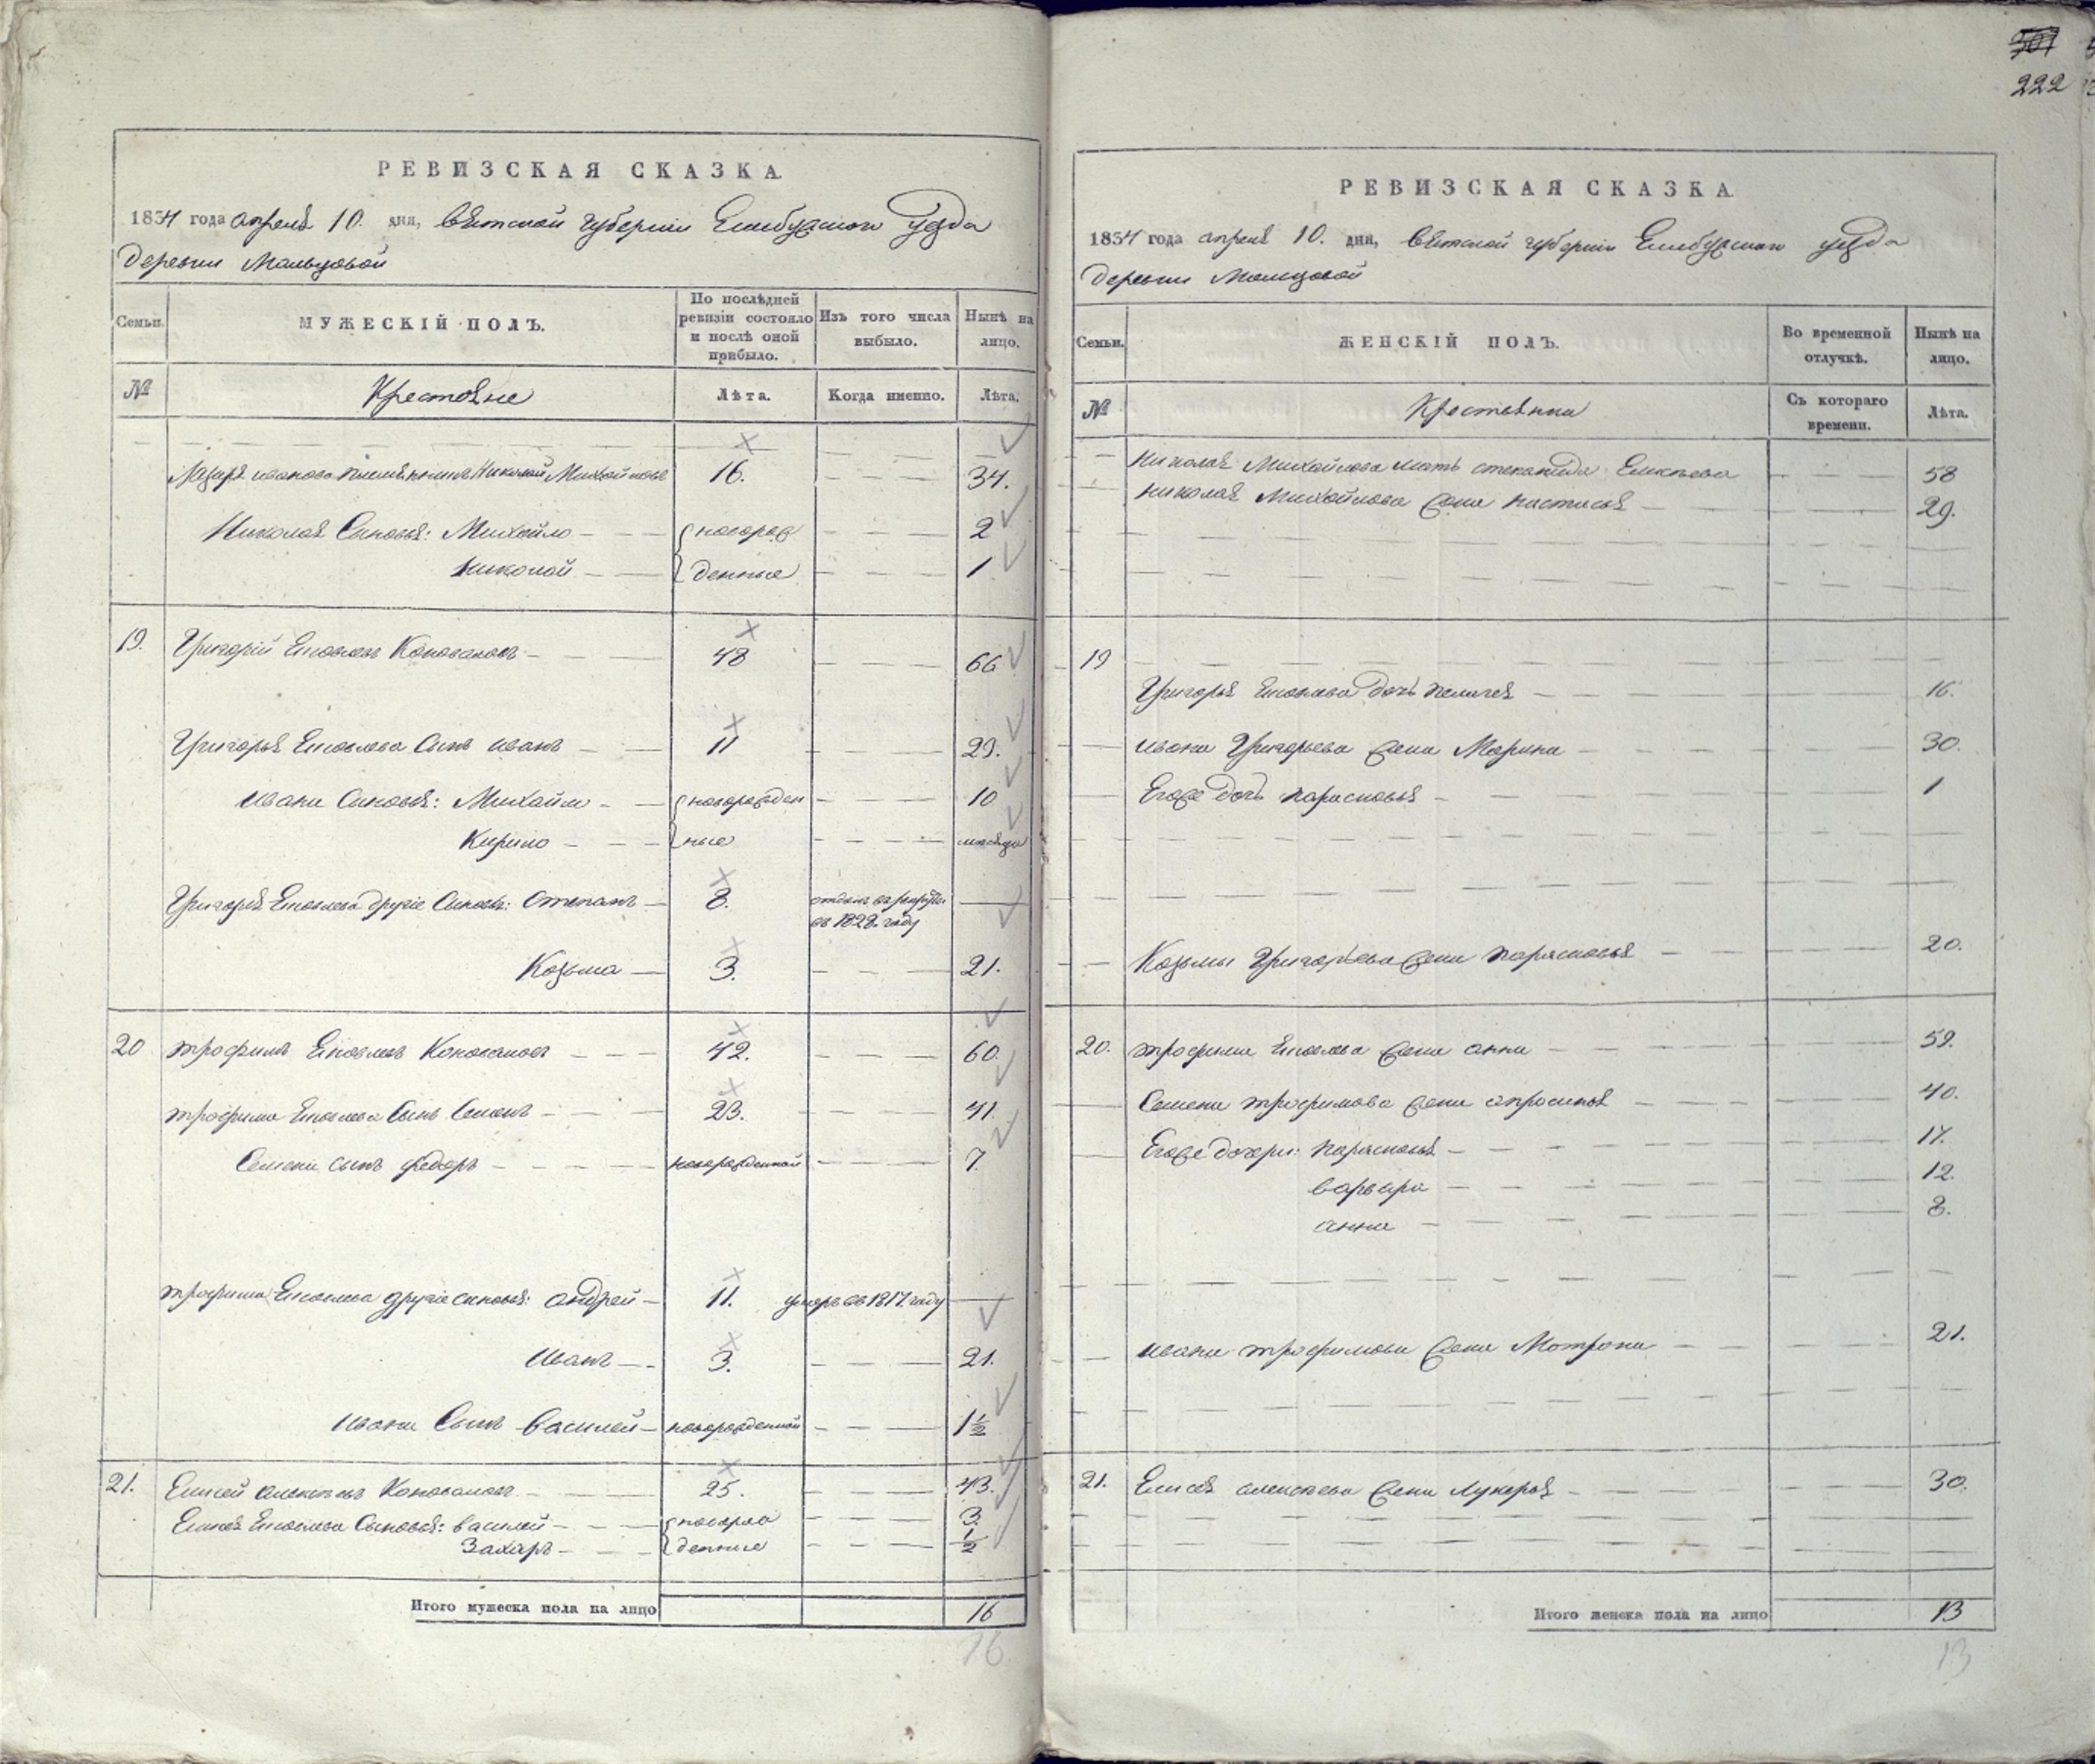 307
222
РЕВИЗСКАЯ СКАЗКА.
1834 года апреля 10. дня, Вятской губернии Елабужского уезда
деревни Мальцовой
Семьи.
МУЖЕСКІЙ ПОЛЪ.
По послѣдней ревизіи состояло и послѣ оной прибыло.
Изъ того числа выбыло.
Нынѣ на лицо.
№
Крестьяне
Лѣта.
Когда именно.
Лѣта.
Лазаря Иванова племянникъ Николай Михайловъ 16. 34.
Николая Сыновья: Михайло новорож 2
Николай денные 1
19. Григорій Яковлевъ Коноваловъ 48 66
Григорья Яковлева Сынъ Иванъ 11 29.
Ивана Сыновья: Михайло новорожден 10
Кирило ные месяца
Григорья Яковлева другіе Сыновья: Степанъ 8. отданъ въ рекруты
въ 1828. году
Козьма 3. 21.
20 Трофимъ Яковлевъ Коноваловъ 42. 60.
Трофима Яковлева Сынъ Семенъ 23. 41.
Семена сынъ Федоръ новорожденной 7
Трофима Яковлева другіе сыновья: Андрей 11. умеръ въ 1817. году
Иванъ 3. 21.
Ивана Сынъ Василей новорожденной 1 1/2
21. Елисей Алексеевъ Коноваловъ 25. 43.
Елисея Сыновья: Василей новорож 3.
Захаръ денные 1/2
Итого мужеска пола на лицо 16
16
РЕВИЗСКАЯ СКАЗКА
1834 года апреля 10. дня, Вятской губернии Елабужского уезда
деревни Мальцовой
Семьи.
ЖЕНСКІЙ ПОЛЪ.
Во временной отлучкѣ.
Нынѣ на лицо.
№
Крестьянки
Съ котораго времени.
Лѣта.
Николая Михайлова мать Степанида 58
Николая Михайлова жена Настасья 29.
19
Григорья Яковлева дочь Пелагея 16.
Ивана Григорьева жена Марина 30.
Егоже дочь Парасковья 1
Козьмы Григорьева жена Парасковья 20.
20. Трофима Яковлева жена Анна 59.
Семена Трофимова жена Апросинья 40.
Егоже дочери: Парасковья 17.
Варвара 12.
Анна 8.
Ивана Трофимова жена Мотрона 21.
21. Елисея Алексеева жена Лукерья 30.
Итого женска пола на лицо 13
13